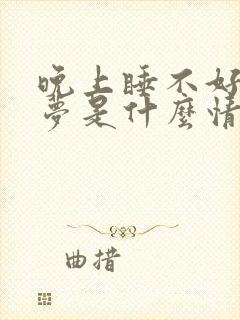 晚上睡不好
夢是什麼情
曲措